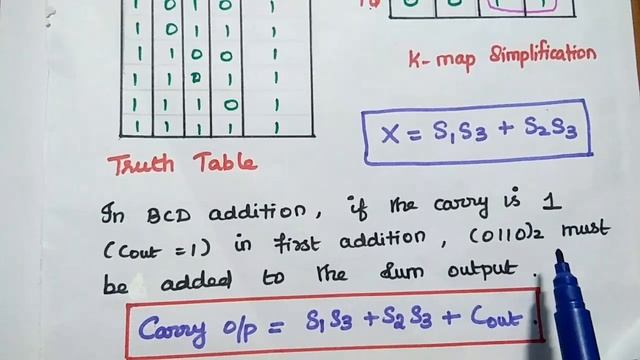 1 0 1 0 1
1 0 1 1 1
1 1 0 0 1
1 1 0 1 1
1 1 1 0 1
1 1 1 1 1
0 0 1 1
K-map Simplification
X = S₁S₃ + S₂S₃
Truth Table
In BCD addition, if the carry is 1
(Cout = 1) in first addition, (0110)₂ must
be added to the sum output.
Carry o/p = S₁S₃ + S₂S₃ + Cout.